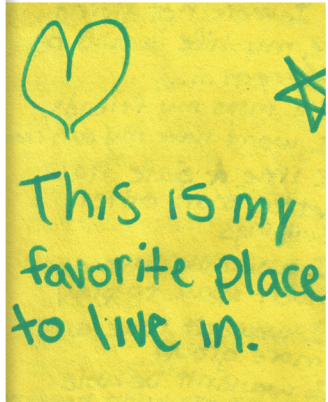 This is my
favorite place
to live in.